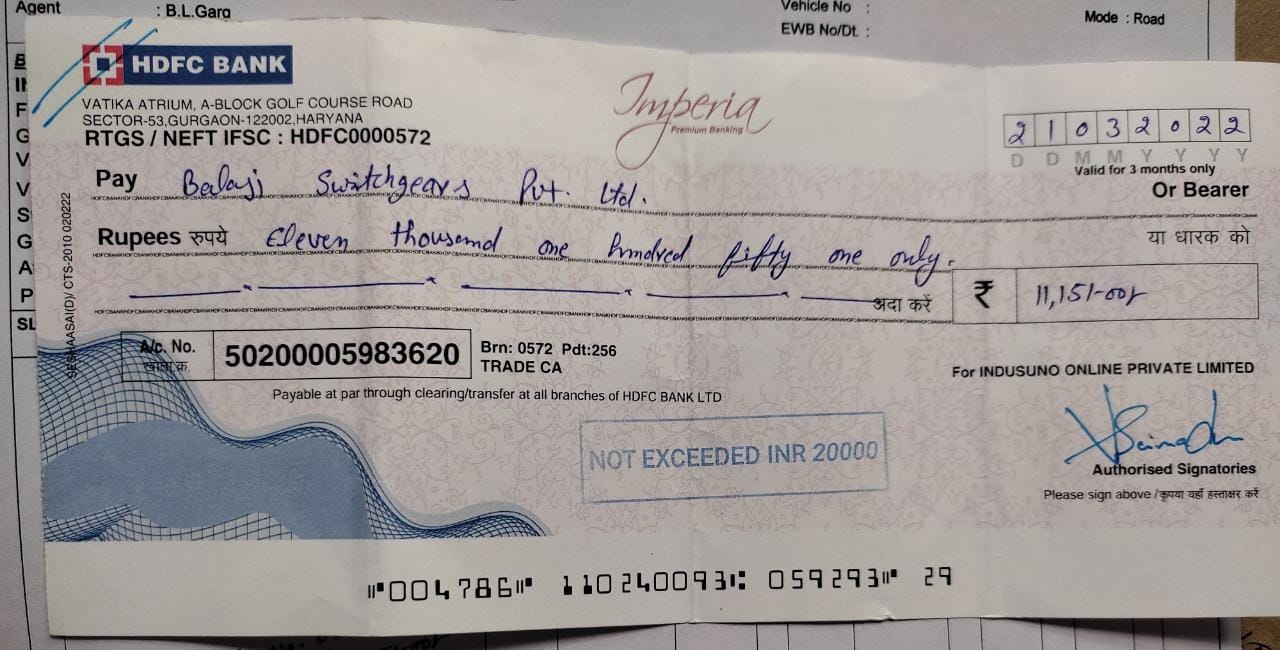 Agent : B.L.Garg
Vehicle No :
EWB No/Dt. :
Mode : Road
HDFC BANK
VATIKA ATRIUM, A-BLOCK GOLF COURSE ROAD
SECTOR-53,GURGAON-122002,HARYANA
RTGS / NEFT IFSC : HDFC0000572
Imperia
Premium Banking
21032022
D D M M Y Y Y Y
Valid for 3 months only
Pay Balaji Switchgears Pvt. Ltd.
Or Bearer
या धारक को
Rupees रुपये Eleven thousand one hundred fifty one only.
अदा करें ₹ 11,151-00/-
A/c. No. 50200005983620
खाता क्र.
Brn: 0572 Pdt:256
TRADE CA
Payable at par through clearing/transfer at all branches of HDFC BANK LTD
For INDUSUNO ONLINE PRIVATE LIMITED
NOT EXCEEDED INR 20000
Authorised Signatories
Please sign above /कृपया यहाँ हस्ताक्षर करें
⑈004786⑈ 110240093⑆ 059293⑈ 29
CTS-2010 020222